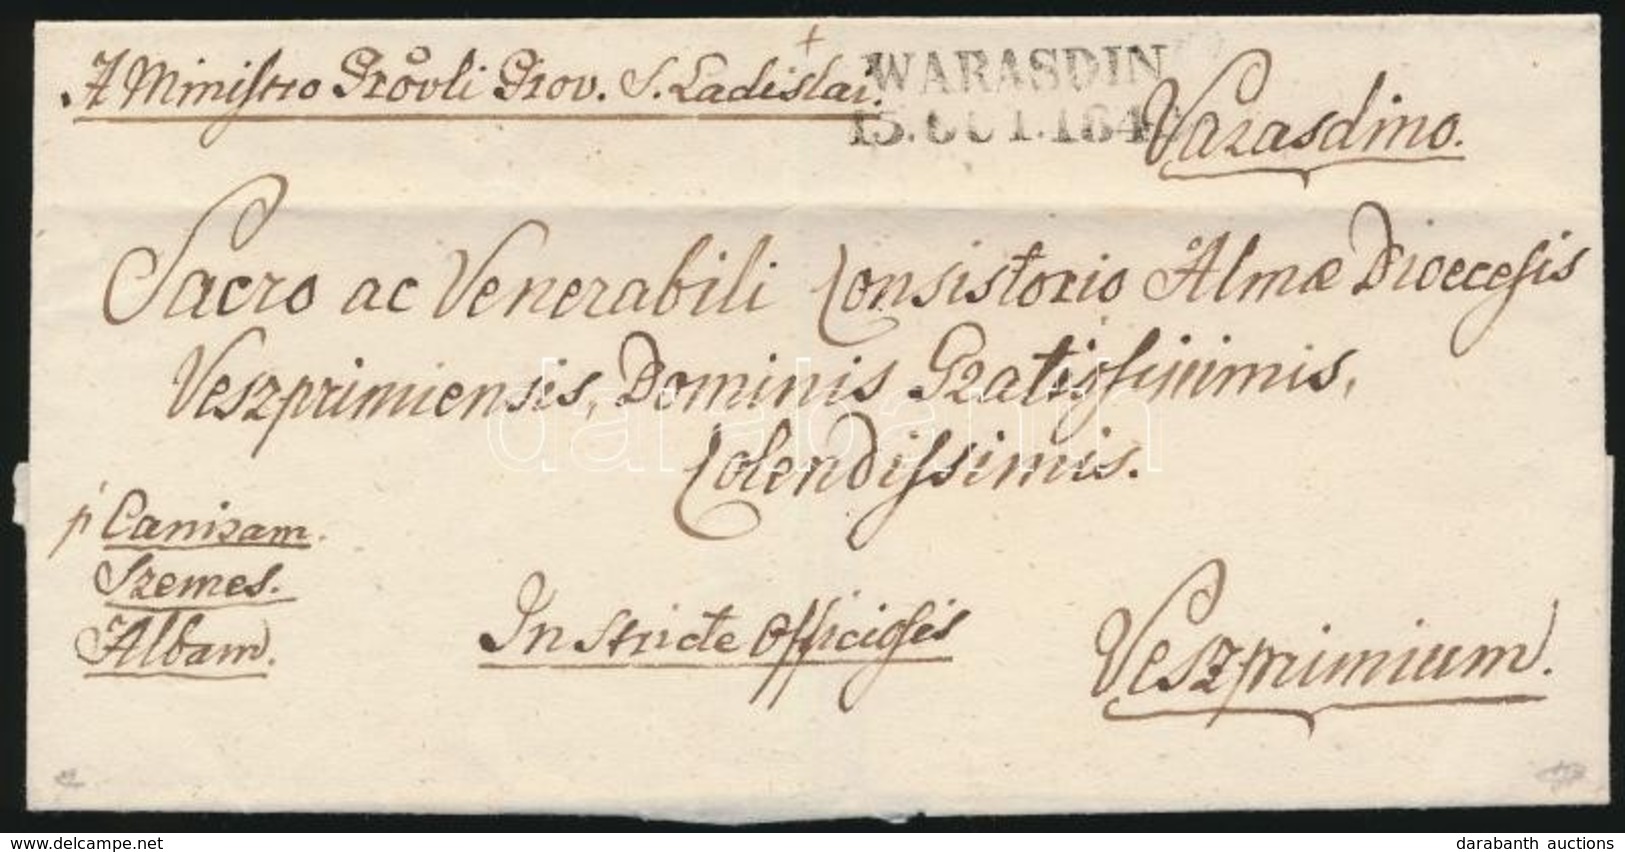 A Ministro Prövli Prov. S. Ladislai.
WARASDIN
15. OCT. 184
Varasdino.
Sacro ac Venerabili Consistorio Almæ Dioecesis
Veszprimiensis, Dominis Gratiosissimis,
Colendissimis.
p Canisam.
Szemes.
Albam.
In Stricte Officiosis
Veszprimium.
darabanth
delcampe.net
darabanth auctions